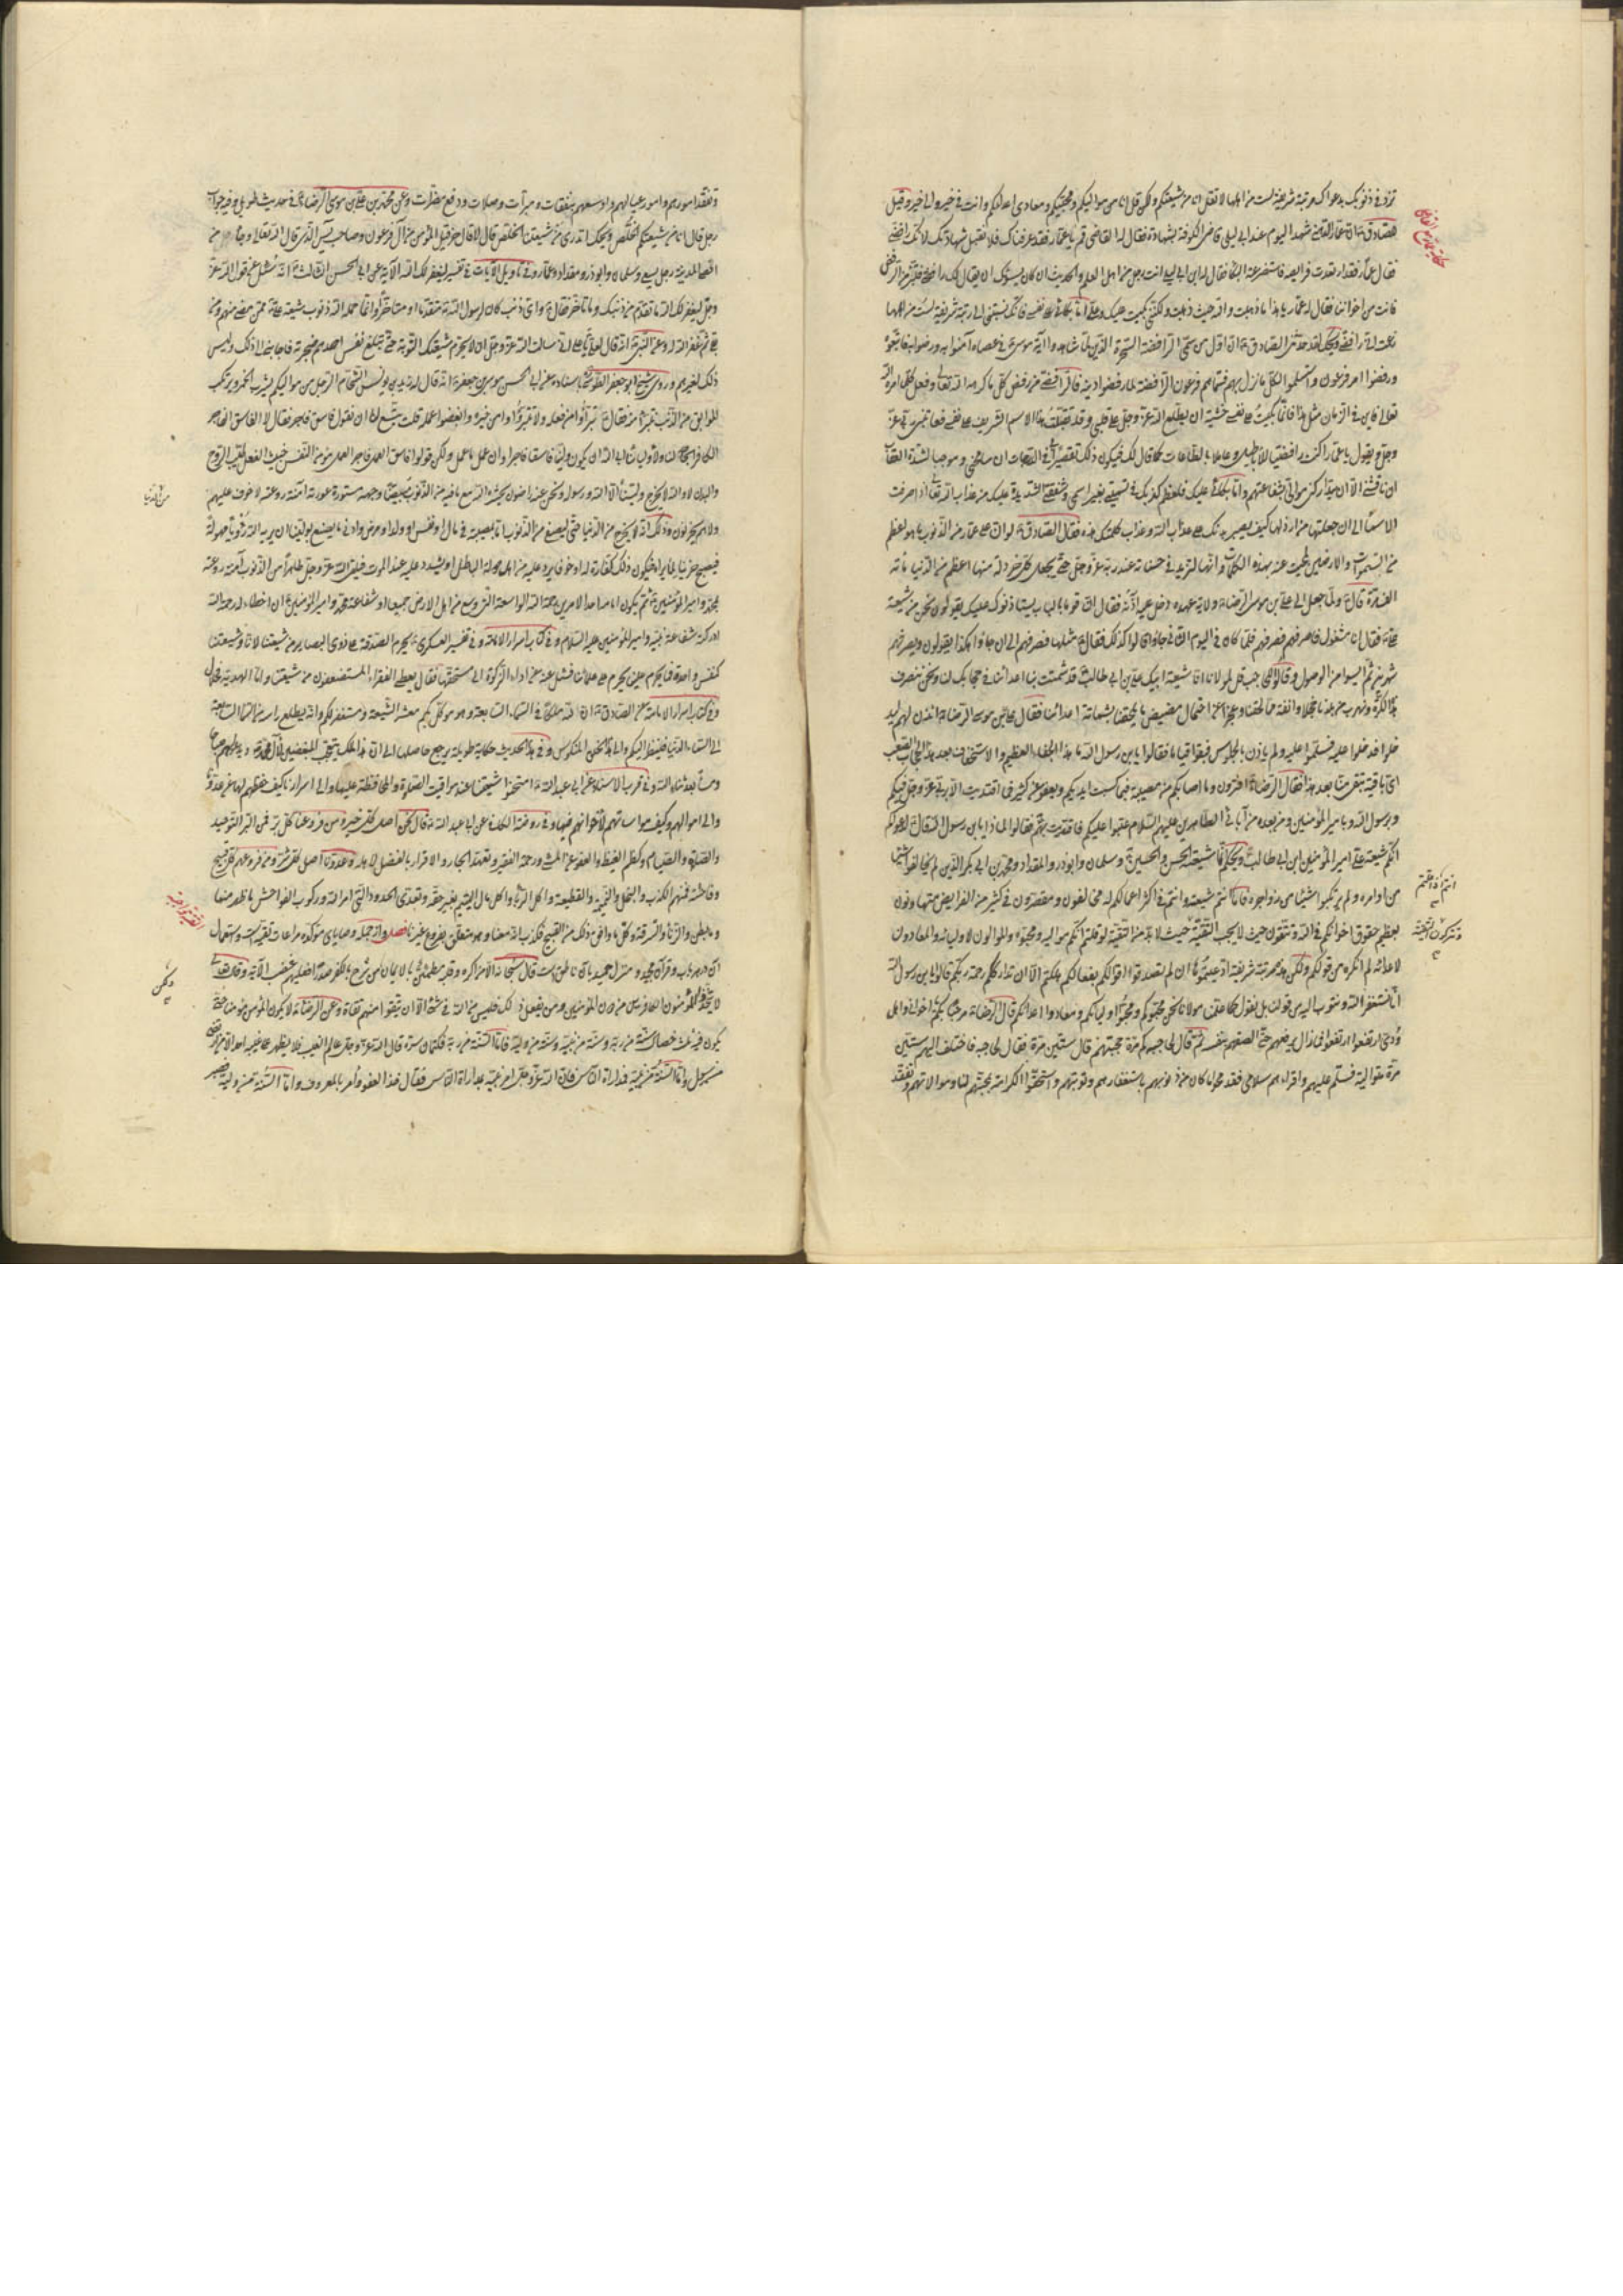 تزد في ذنوبك بدعواك مرتبة شريفة لست من اهلها لا تقل انا من شيعتكم ولكن قل انا من مواليكم ومحبيكم ومعادي اعدائكم وانت في خير والى خير وقيل
للصادق ع ان عمار الدهني شهد اليوم عند ابن ابي ليلى قاضي الكوفة بشهادة فقال له القاضي قم يا عمار فقد عرفناك فلا تقبل شهادتك لانك رافضي
فقام عمار وقد ارتعدت فرائصه فاستفرغه البكاء فقال له ابن ابي ليلى انت رجل من اهل العلم والحديث ان كان يسوءك ان يقال لك رافضي فتبرأ من الرفض
فانت من اخواننا فقال له عمار يا هذا ما ذهبت والله حيث ذهبت ولكني بكيت عليك وعلي اما بكائي على نفسي فانك نسبتني الى رتبة شريفة لست من اهلها
زعمت اني رافضي ويحك لقد حدثني الصادق ع ان اول من سمي الرافضة السحرة الذين لما شاهدوا آية موسى في عصاه آمنوا به ورضوا به واتبعوه
ورفضوا امر فرعون واستسلموا لكل ما نزل بهم فسماهم فرعون الرافضة لما رفضوا دينه فالرافضي من رفض كل ما كرهه الله تعالى وفعل كل ما امره الله
تعالى فاين في الزمان مثل هذا فانما بكيت على نفسي خشية ان يطلع الله عز وجل على قلبي وقد تقبلت هذا الاسم الشريف على نفسي فيعاتبني ربي عز
وجل ويقول يا عمار اكنت رافضا للاباطيل وعاملا بالطاعات كما قال لك فيكون ذلك تقصيرا بي في الدرجات ان سامحني وموجبا لشديد العقاب
ان ناقشني الا ان يتداركني موالي بشفاعتهم واما بكائي عليك فلعظم كذبك في تسميتي بغير اسمي وشفقتي الشديدة عليك من عذاب الله تعالى اذا صرفت
الاسماء الى ان جعلتها من ارذلها كيف يصبر بدنك على عذاب الله وعذاب كلمتك هذه فقال الصادق ع لو ان على عمار من الذنوب ما هو اعظم
من السموات والارضين لمحيت عنه بهذه الكلمات وانها لتزيد في حسناته عند ربه عز وجل حتى يجعل كل خردلة منها اعظم من الدنيا مائة
الف مرة قال ولما جعل الى علي بن موسى الرضا ع ولاية عهده دخل عليه آذنه فقال ان قوما بالباب يستأذنون عليك يقولون نحن من شيعة
علي فقال انا مشغول فاصرفهم فصرفهم فلما كان في اليوم الثاني جاؤا وقالوا كذلك فقال مثلها فصرفهم الى ان جاؤا هكذا يقولون ويصرفهم
شهرين ثم ايسوا من الوصول وقالوا للحاجب قل لمولانا انا شيعة ابيك علي بن ابي طالب ع قد شمت بنا اعداؤنا في حجابك لنا ونحن ننصرف
هذه الكرة ونهرب من بلدنا خجلا وانفة مما لحقنا وعجزا عن احتمال مضض ما يلحقنا بشماتة اعدائنا فقال علي بن موسى الرضا ع ائذن لهم ليد
خلوا فدخلوا عليه فسلموا عليه ولم يأذن بالجلوس فبقوا قياما فقالوا يا بن رسول الله ما هذا الجفاء العظيم والاستخفاف بعد هذا الحجاب الصعب
اي باقية تبقى منا بعد هذا فقال الرضا ع اقرؤن وما اصابكم من مصيبة فبما كسبت ايديكم ويعفو عن كثير ما اقتديت الا بربي عز وجل فيكم
وبرسول الله وبامير المؤمنين ومن بعده من آبائي الطاهرين عليهم السلام عتبوا عليكم فاقتديت بهم فقالوا لماذا يا بن رسول الله قال لدعواكم
انكم شيعة علي امير المؤمنين بن ابي طالب ع ويحكم انما شيعته الحسن والحسين ع وسلمان وابوذر والمقداد ومحمد بن ابي بكر الذين لم يخالفوا شيئا
من اوامره ولم يرتكبوا شيئا من زواجره فاما انتم شيعته وانتم في اكثر اعمالكم له مخالفون ومقصرون في كثير من الفرائض متهاونون
بعظيم حقوق اخوانكم في الله وتتقون حيث لا يجب التقية حيث لا بد من التقية لو قلتم انكم مواليه ومحبوه والموالون لاوليائه والمعادون
لاعدائه لم انكره من قولكم ولكن هذه مرتبة شريفة ادعيتموها ان لم تصدقوا قولكم بفعالكم هلكتم الا ان تدارككم رحمة ربكم قالوا يا بن رسول الله
انا نستغفر الله ونتوب اليه من قولنا بل نقول كما علمنا مولانا نحن محبوكم ومحبوا اوليائكم ومعادوا اعدائكم قال الرضا ع مرحبا بكم اخواني واهل
ودي ارتفعوا ارتفعوا فما زال يرفعهم حتى الصقهم بنفسه ثم قال لحاجبه كم مرة حجبتهم قال ستين مرة فقال لحاجبه فاختلف اليهم ستين
مرة متوالية فسلم عليهم واقرأهم سلامي فقد محوا ما كان من ذنوبهم باستغفارهم وتوبتهم واستحقوا الكرامة لمحبتهم لنا وموالاتهم وتفقد
حكاية عمار مع القاضي
انتم اذ اعتم
وتتركون التقية
وتفقد امورهم وامور عيالهم واوسعهم بنفقات ومبرات وصلات ودفع مضرات وعن محمد بن علي بن موسى الرضا ع في حديث طويل وفيه جواب
رجل قال انا من شيعتكم الخلص ويحك اتدري من شيعتنا الخلص قال لا قال حزقيل المؤمن من آل فرعون وصاحب يس الذي قال الله تعالى وجاء من
اقصا المدينة رجل يسعى وسلمان وابوذر ومقداد وعمار وفي تاويل الآيات في تفسير ليغفر لك الله الآية عن ابي الحسن الثالث ع انه سئل عن قول الله عز
وجل ليغفر لك الله ما تقدم من ذنبك وما تأخر فقال ع واي ذنب كان لرسول الله ص متقدما او متأخرا وانما حمله الله ذنوب شيعة علي ع ممن مضى منهم ومن
بقي ثم غفر الله له وعن النبي ص انه قال لعلي ع يا علي اني سالت الله عز وجل ان لا يحرم شيعتك التوبة حتى تبلغ نفس احدهم حنجرته فاجابني الى ذلك وليس
ذلك لغيرهم وروى شيخ ابو جعفر الطوسي باسناده عن ابي الحسن موسى بن جعفر ع انه قال له زيد بن يونس الشحام الرجل من مواليكم يشرب الخمر ويرتكب
الموبق من الذنب نتبرأ منه فقال ع تبرأوا من فعله ولا تبرؤا من خيره وابغضوا عمله قلت يتسع لنا ان نقول فاسق فاجر فقال لا الفاسق الفاجر
الكافر الجاحد لنا ولاوليائنا ابى الله ان يكون ولينا فاسقا فاجرا وان عمل ما عمل ولكن قولوا فاسق العمل فاجر العمل مؤمن النفس خبيث الفعل طيب الروح
والبدن لا والله لا يخرج ولينا الا والله ورسوله ونحن عنه راضون يحشره الله مع ما فيه من الذنوب مبيضا وجهه مستورة عورته آمنة روعته لا خوف عليهم
ولا هم يحزنون وذلك انه لا يخرج من الدنيا حتى يصفى من الذنوب اما بمصيبة في مال او نفس او ولد او مرض وادنى ما يصنع بولينا ان يريه الله رؤيا مهولة
فيصبح حزينا لما رآه فيكون ذلك كفارة له او خوفا يرد عليه من اهل دولة الباطل او يشدد عليه عند الموت فيلقى الله عز وجل طاهرا من الذنوب آمنة روعته
بمحمد وامير المؤمنين ع ثم يكون امامه احد الامرين رحمة الله الواسعة التي هي اوسع من اهل الارض جميعا او شفاعة محمد وامير المؤمنين ع ان اخطاءته رحمة الله
ادركته شفاعة نبيه وامير المؤمنين عليه السلام وفي كتاب اسرار الامامة وفي تفسير العسكري ع يحرم الصدقة على ذوي البصاير من شيعتنا لانا وشيعتنا
كنفس واحدة فما يحرم علينا يحرم على علمائنا فسئل عنه عن اداء الزكوة الى مستحقها فقال يعطى الفقراء المستضعفون من شيعتنا
وفي كتاب اسرار الامامة عن الصادق ع ان لله ملكا في السماء السابعة وهو موكل بكم معشر الشيعة ومستغفر لكم وانه يطلع راسه من السماء السابعة
الى السماء الدنيا فينظر اليكم والى هذا الخلق المنكوس وفي هذا الحديث حكاية طويلة يرجع حاصلها الى ان هذا الملك يتعجب المبغضين لآل محمد ع
وفي قرب الاسناد عن ابي عبد الله ع امتحنوا شيعتنا عند مواقيت الصلوة والمحافظة عليها والى اسرارنا كيف حفظهم لها عن عدونا
والى اموالهم وكيف مواساتهم لاخوانهم فيها وفي روضة الكافي عن ابي عبد الله ع قال نحن اصل كل خير ومن فروعنا كل بر فمن البر التوحيد
والصلوة والصيام وكظم الغيظ والعفو عن المسيئ ورحمة الفقير وتعهد الجار والاقرار بالفضل لاهله وعدونا اصل كل شر ومن فروعهم كل قبيح
وفاحشة فمنهم الكذب والبخل والنميمة والقطيعة واكل الربا واكل مال اليتيم بغير حقه وتعدي الحدود التي امر الله وركوب الفواحش ما ظهر منها
وما بطن والزنا والسرقة وكل ما وافق ذلك من القبيح فكذب من زعم انه معنا وهو متعلق بفروع غيرنا فصل واز جمله وصاياى مؤكده مراعات تقيه است واستعمال
آن درهر باب وقرآن مجيد ومنزل حميد بآن ناطق است قال سبحانه الا من اكره وقلبه مطمئن بالايمان ولكن من شرح بالكفر صدرا فعليهم غضب الآية وقال تعالى
لا يتخذ المؤمنون الكافرين من دون المؤمنين ومن يفعل ذلك فليس من الله في شئ الا ان تتقوا منهم تقاة وعن الرضا ع لا يكون المؤمن مؤمنا حتى
يكون فيه ثلث خصال سنة من ربه وسنة من نبيه وسنة من وليه فاما السنة من ربه فكتمان سره قال الله عز وجل عالم الغيب فلا يظهر على غيبه احدا الا من ارتضى
من رسول واما السنة من نبيه فمداراة الناس فان الله عز وجل امر نبيه بمداراة الناس فقال خذ العفو وأمر بالمعروف واما السنة من وليه فصبر
من الدنيا
التقية واجبة
ولكن